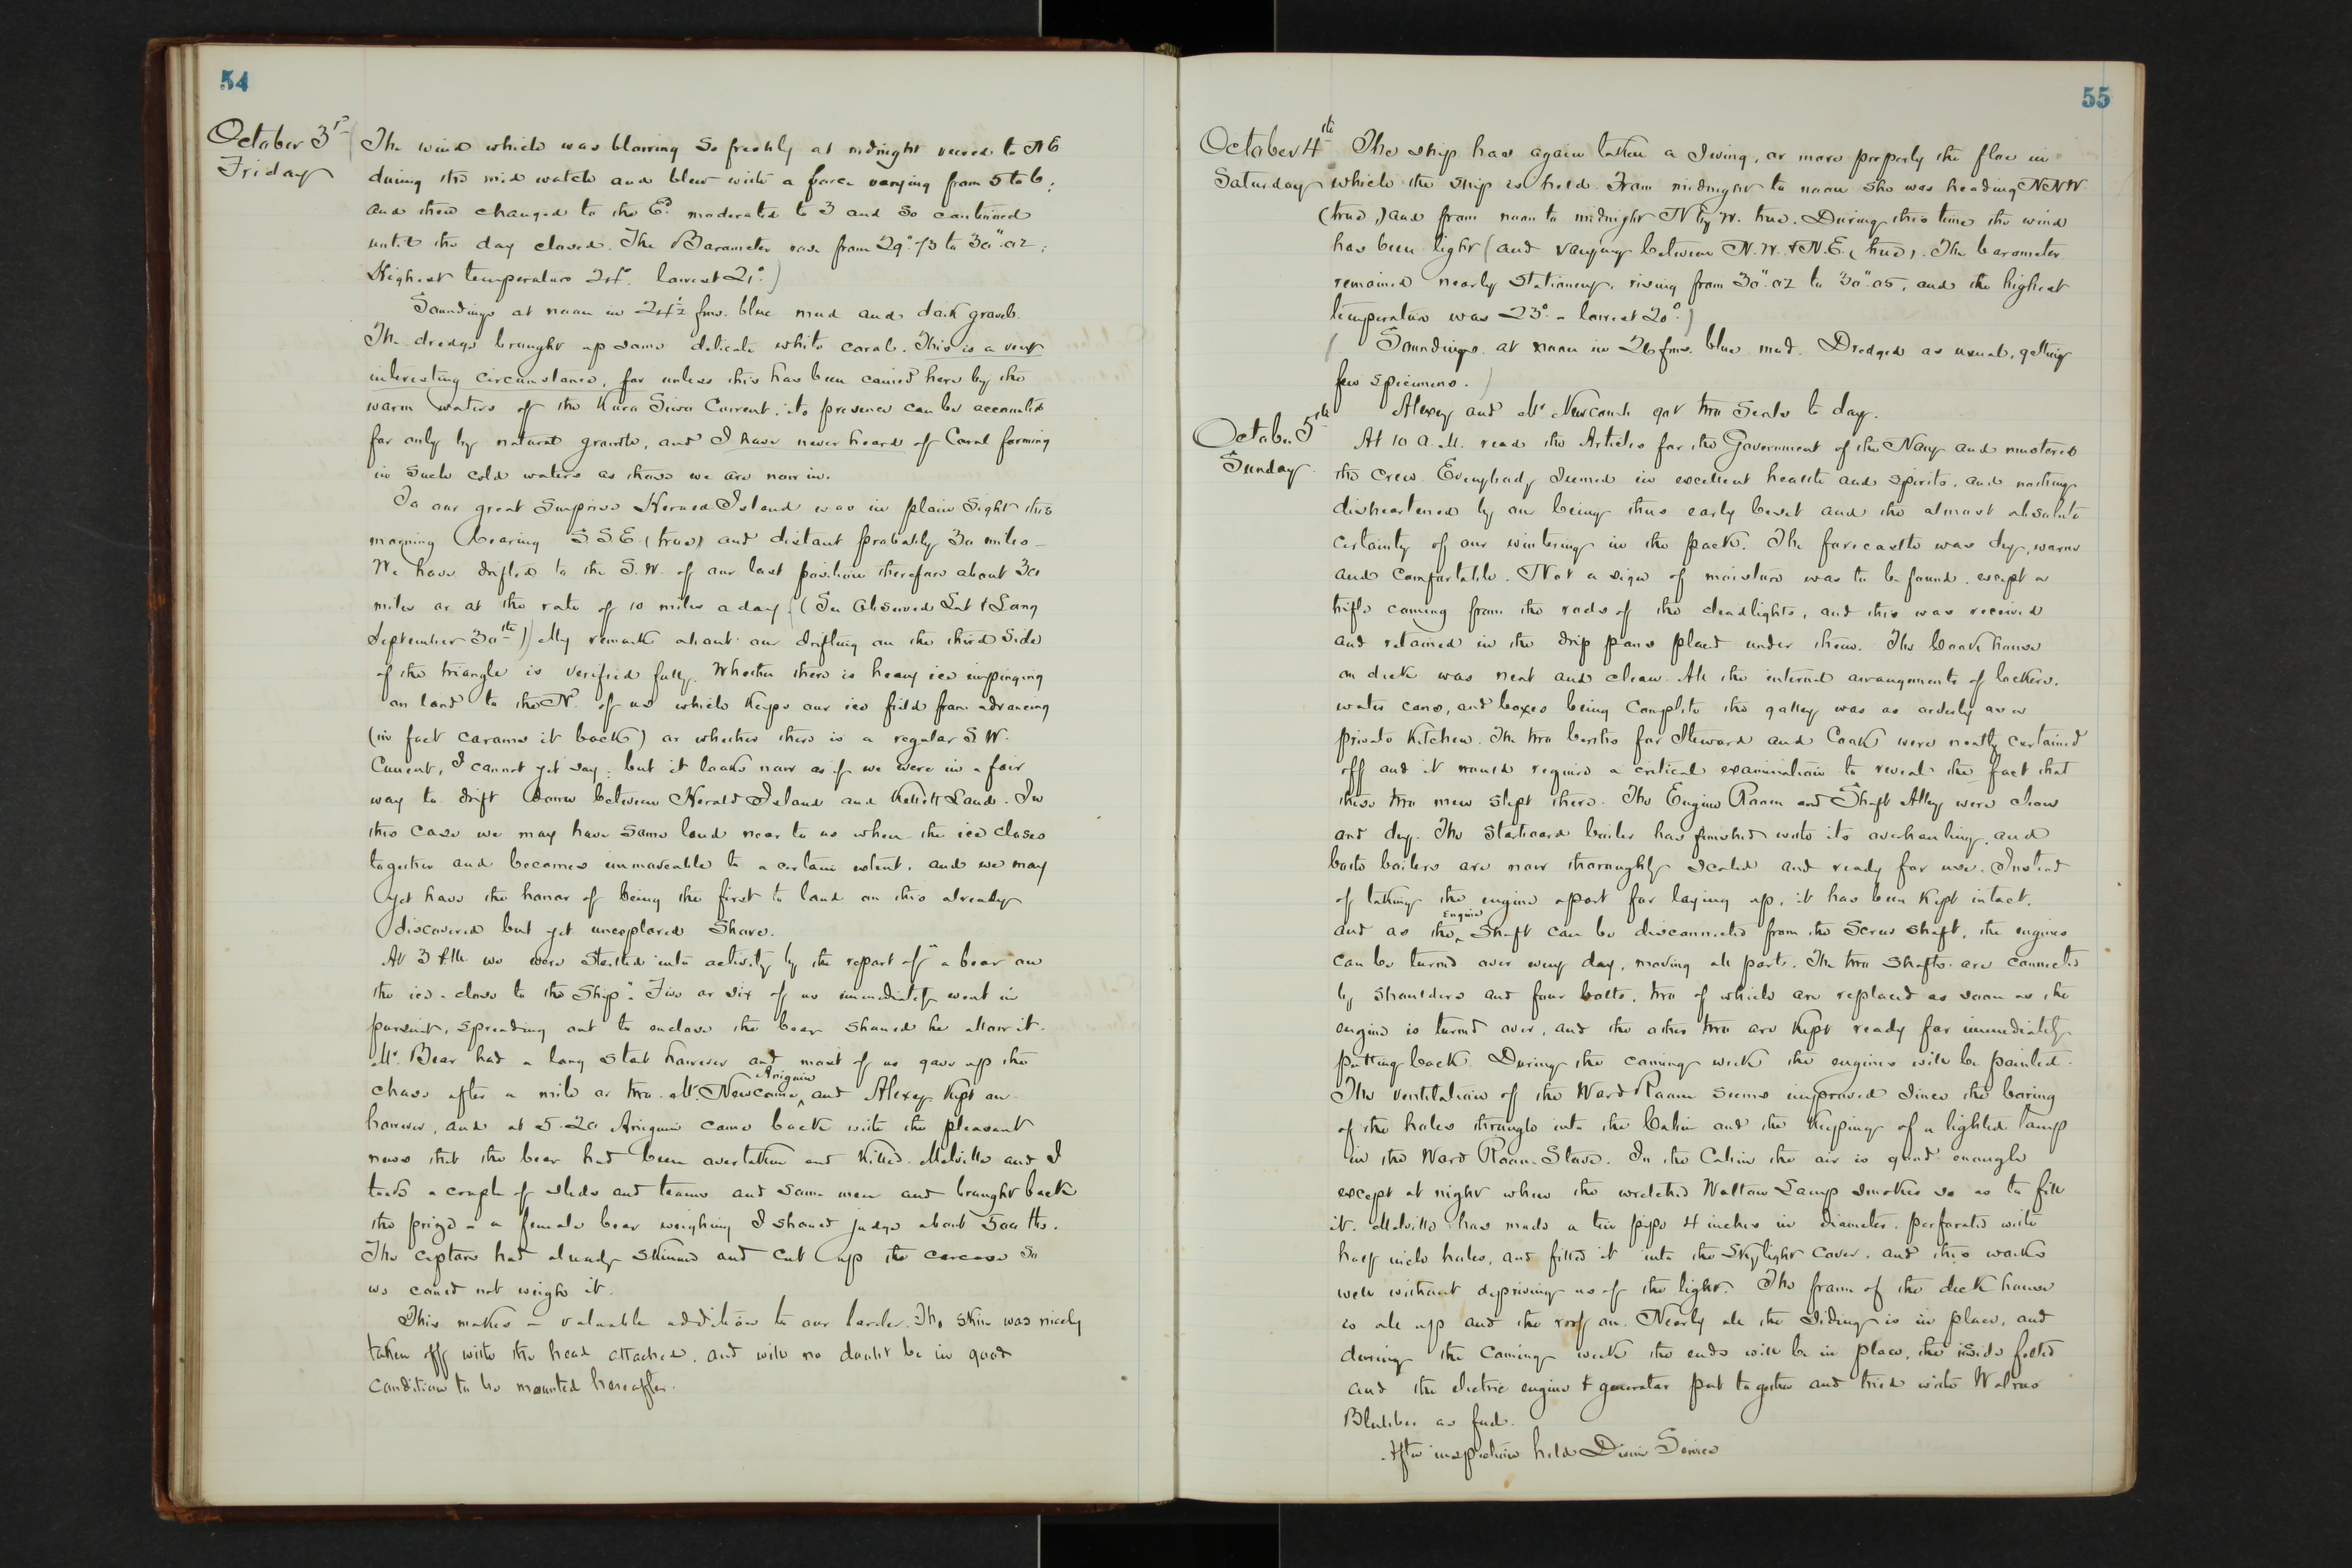 54
October 3rd
Friday
The wind which was blowing so freshly at midnight veered to NE
during the mid watch and blew with a force varying from 5 to 6;
and then changed to the Ed. moderated to 3 and so continued
until the day closed. The Barometer rose from 29".73 to 30".02;
Highest temperature 24°. lowest 21°.)
Soundings at noon in 24½ fms. blue mud and dark gravel.
The dredge brought up some delicate white coral. This is a very
interesting circumstance, for unless this has been carried here by the
warm waters of the Kuro Siwo Current, its presence can be accounted
for only by natural growth, and I have never heard of Coral forming
in such cold waters as those we are now in.
To our great surprise Herald Island was in plain sight this
morning bearing S.S.E. (true) and distant probably 30 miles -
We have drifted to the S.W. of our last position therefore about 30
miles or at the rate of 10 miles a day. (See Observed Lat & Long
September 30th)) My remark about our drifting on the third side
of the triangle is verified fully. Whether there is heavy ice impinging
on land to the Nd. of us which keeps our ice field from advancing
(in fact caroms it back) or whether there is a regular S.W.
Current, I cannot yet say; but it looks now as if we were in a fair
way to drift down between Herald Island and Kellett Land. In
this case we may have some land near to us when the ice closes
together and becomes unmoveable to a certain extent, and we may
yet have the honor of being the first to land on this already
discovered but yet unexplored Shore.
At 3 P.M. we were startled into activity by the report of "a bear on
the ice - close to the Ship". Five or six of us immediately went in
pursuit, spreading out to enclose the bear should he allow it.
Mr. Bear had a long start however and most of us gave up the
chase after a mile or two. Mr. Newcomb, Aneguin and Alexey kept on
however, and at 5.20 Aneguin came back with the pleasant
news that the bear had been overtaken and killed. Melville and I
took a couple of sleds and teams and some men and brought back
the prize - a female bear weighing I should judge about 500 lbs.
The captors had already skinned and cut up the carcase so
we could not weigh it.
This makes a valuable addition to our larder. The skin was nicely
taken off with the head attached, and will no doubt be in good
condition to be mounted hereafter.
55
October 4th
Saturday
The ship has again taken a swing, or more properly the floe in
which the ship is held. From midnight to noon she was heading NNW
(true,) and from noon to midnight N by W. true. During this time the wind
has been light (and varying between N.W. & N.E. (true). The barometer
remained nearly stationary, rising from 30".02 to 30".05, and the highest
temperature was 23°. - lowest 20°.)
( Soundings at noon in 26 fms. blue mud. Dredged as usual, getting
few specimens. )
Alexey and Mr. Newcomb got two Seals to day.
October 5th
Sunday
At 10 A.M. read the Articles for the Government of the Navy and mustered
the crew. Everybody seemed in excellent health and spirits, and nothing
disheartened by our being thus early beset and the almost absolute
certainty of our wintering in the pack. The forecastle was dry, warm
and comfortable. Not a sign of moisture was to be found, except a
trifle coming from the rods of the deadlights, and this was received
and retained in the drip pans placed under them. The Cook house
on deck was neat and clean. All the internal arrangements of lockers,
water cans, and boxes being complete the galley was as orderly as a
private kitchen. The two berths for Steward and Cook were neatly curtained
off and it would require a critical examination to reveal the fact that
these two men slept there. The Engine Room and Shaft Alley were clean
and dry. The starboard boiler has finished with its overhauling, and
both boilers are now thoroughly scaled and ready for use. Instead
of taking the engine apart for laying up, it has been kept intact,
and as the Engine Shaft can be disconnected from the Screw shaft, the engines
can be turned over every day, moving all parts. The two shafts are connected
by shoulders and four bolts, two of which are replaced as soon as the
engine is turned over, and the other two are kept ready for immediately
putting back. During the coming week the engines will be painted.
The ventilation of the Ward Room seems improved since the boring
of the holes through into the Cabin and the keeping of a lighted lamp
in the Ward Room Stove. In the Cabin the air is good enough
except at night when the wretched Walton Lamp smokes so as to fill
it. Melville has made a tin pipe 4 inches in diameter, perforated with
half inch holes, and fitted it into the Skylight Cover, and this works
well without depriving us of the light. The frame of the deck house
is all up and the roof on. Nearly all the siding is in place, and
during the coming week the ends will be in place, the inside felted
and the electric engine & generator put together and tried with Walrus
Blubber as fuel.
After inspection held Divine Service